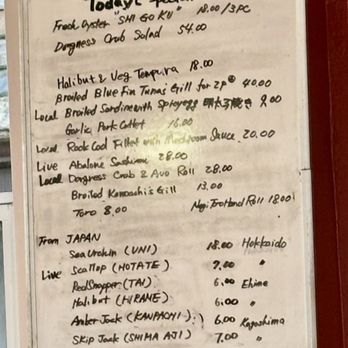 Today's Special
Fresh Oyster "SHI GO KU" 18.00/3PC
Dungness Crab Salad 54.00
Halibut & Veg Tempura 18.00
Broiled Blue Fin Tuna's Grill for 2p 40.00
Local Broiled Sardine with Spicy egg 明太子焼き 9.00
Garlic Pork Cutlet 16.00
Local Rock Cod Fillet with Mushroom Sauce 20.00
Live Abalone Sashimi 28.00
Local Dungness Crab & Avo Roll 28.00
Broiled Kampachi's Grill 13.00
Toro 8.00 Negi Toro Hand Roll 18.00
From JAPAN
Sea Urchin (UNI) 18.00 Hokkaido
Live Scallop (HOTATE) 7.00 "
Red Snapper (TAI) 6.00 Ehime
Halibut (HIRAME) 6.00 "
Amber Jack (KANPACHI) 6.00 Kagoshima
Skip Jack (SHIMA AJI) 7.00 "